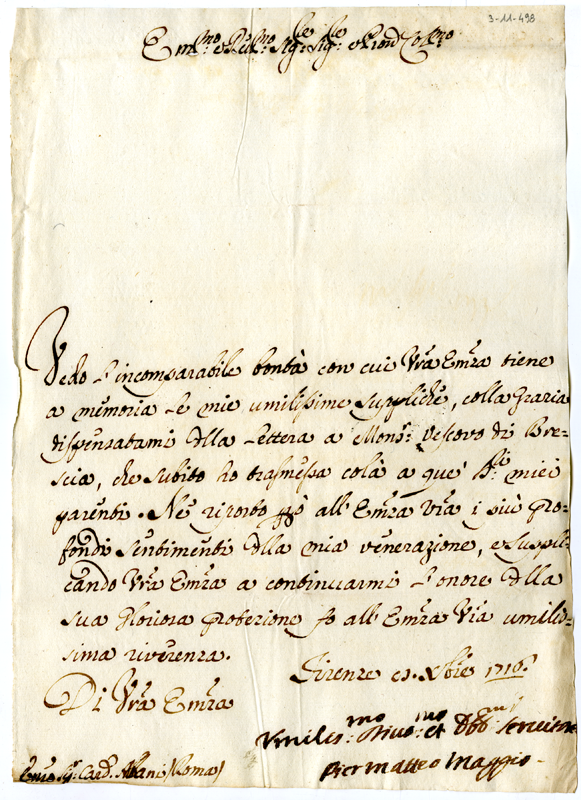 3-11-498
Em.mo e Rev.mo Sig.re Sig.re e Pron Col.mo
Vedo l'incomparabile bontà con cui Vrã Emza tiene
a memoria le mie umilissime suppliche, colla grazia
dispensatami dlla lettera a Mons.r Vescovo di Bre=
scia, che subito ho trasmessa colà a que' miei
parenti. Ne riporto all'Emza Vrã i più pro=
fondi sentimenti dlla mia venerazione, e suppli=
cando Vrã Emza a continuarmi l'onore dlla
sua gloriosa protezione fo all'Emza Vrã umilis=
sima riverenza.
Firenze Xbre 1716.
Di Vrã Emza
Umilis.mo Divo.mo et Obb.mo Servitore
Pier Matteo Maggio
Sig. Card. Albani (Roma)